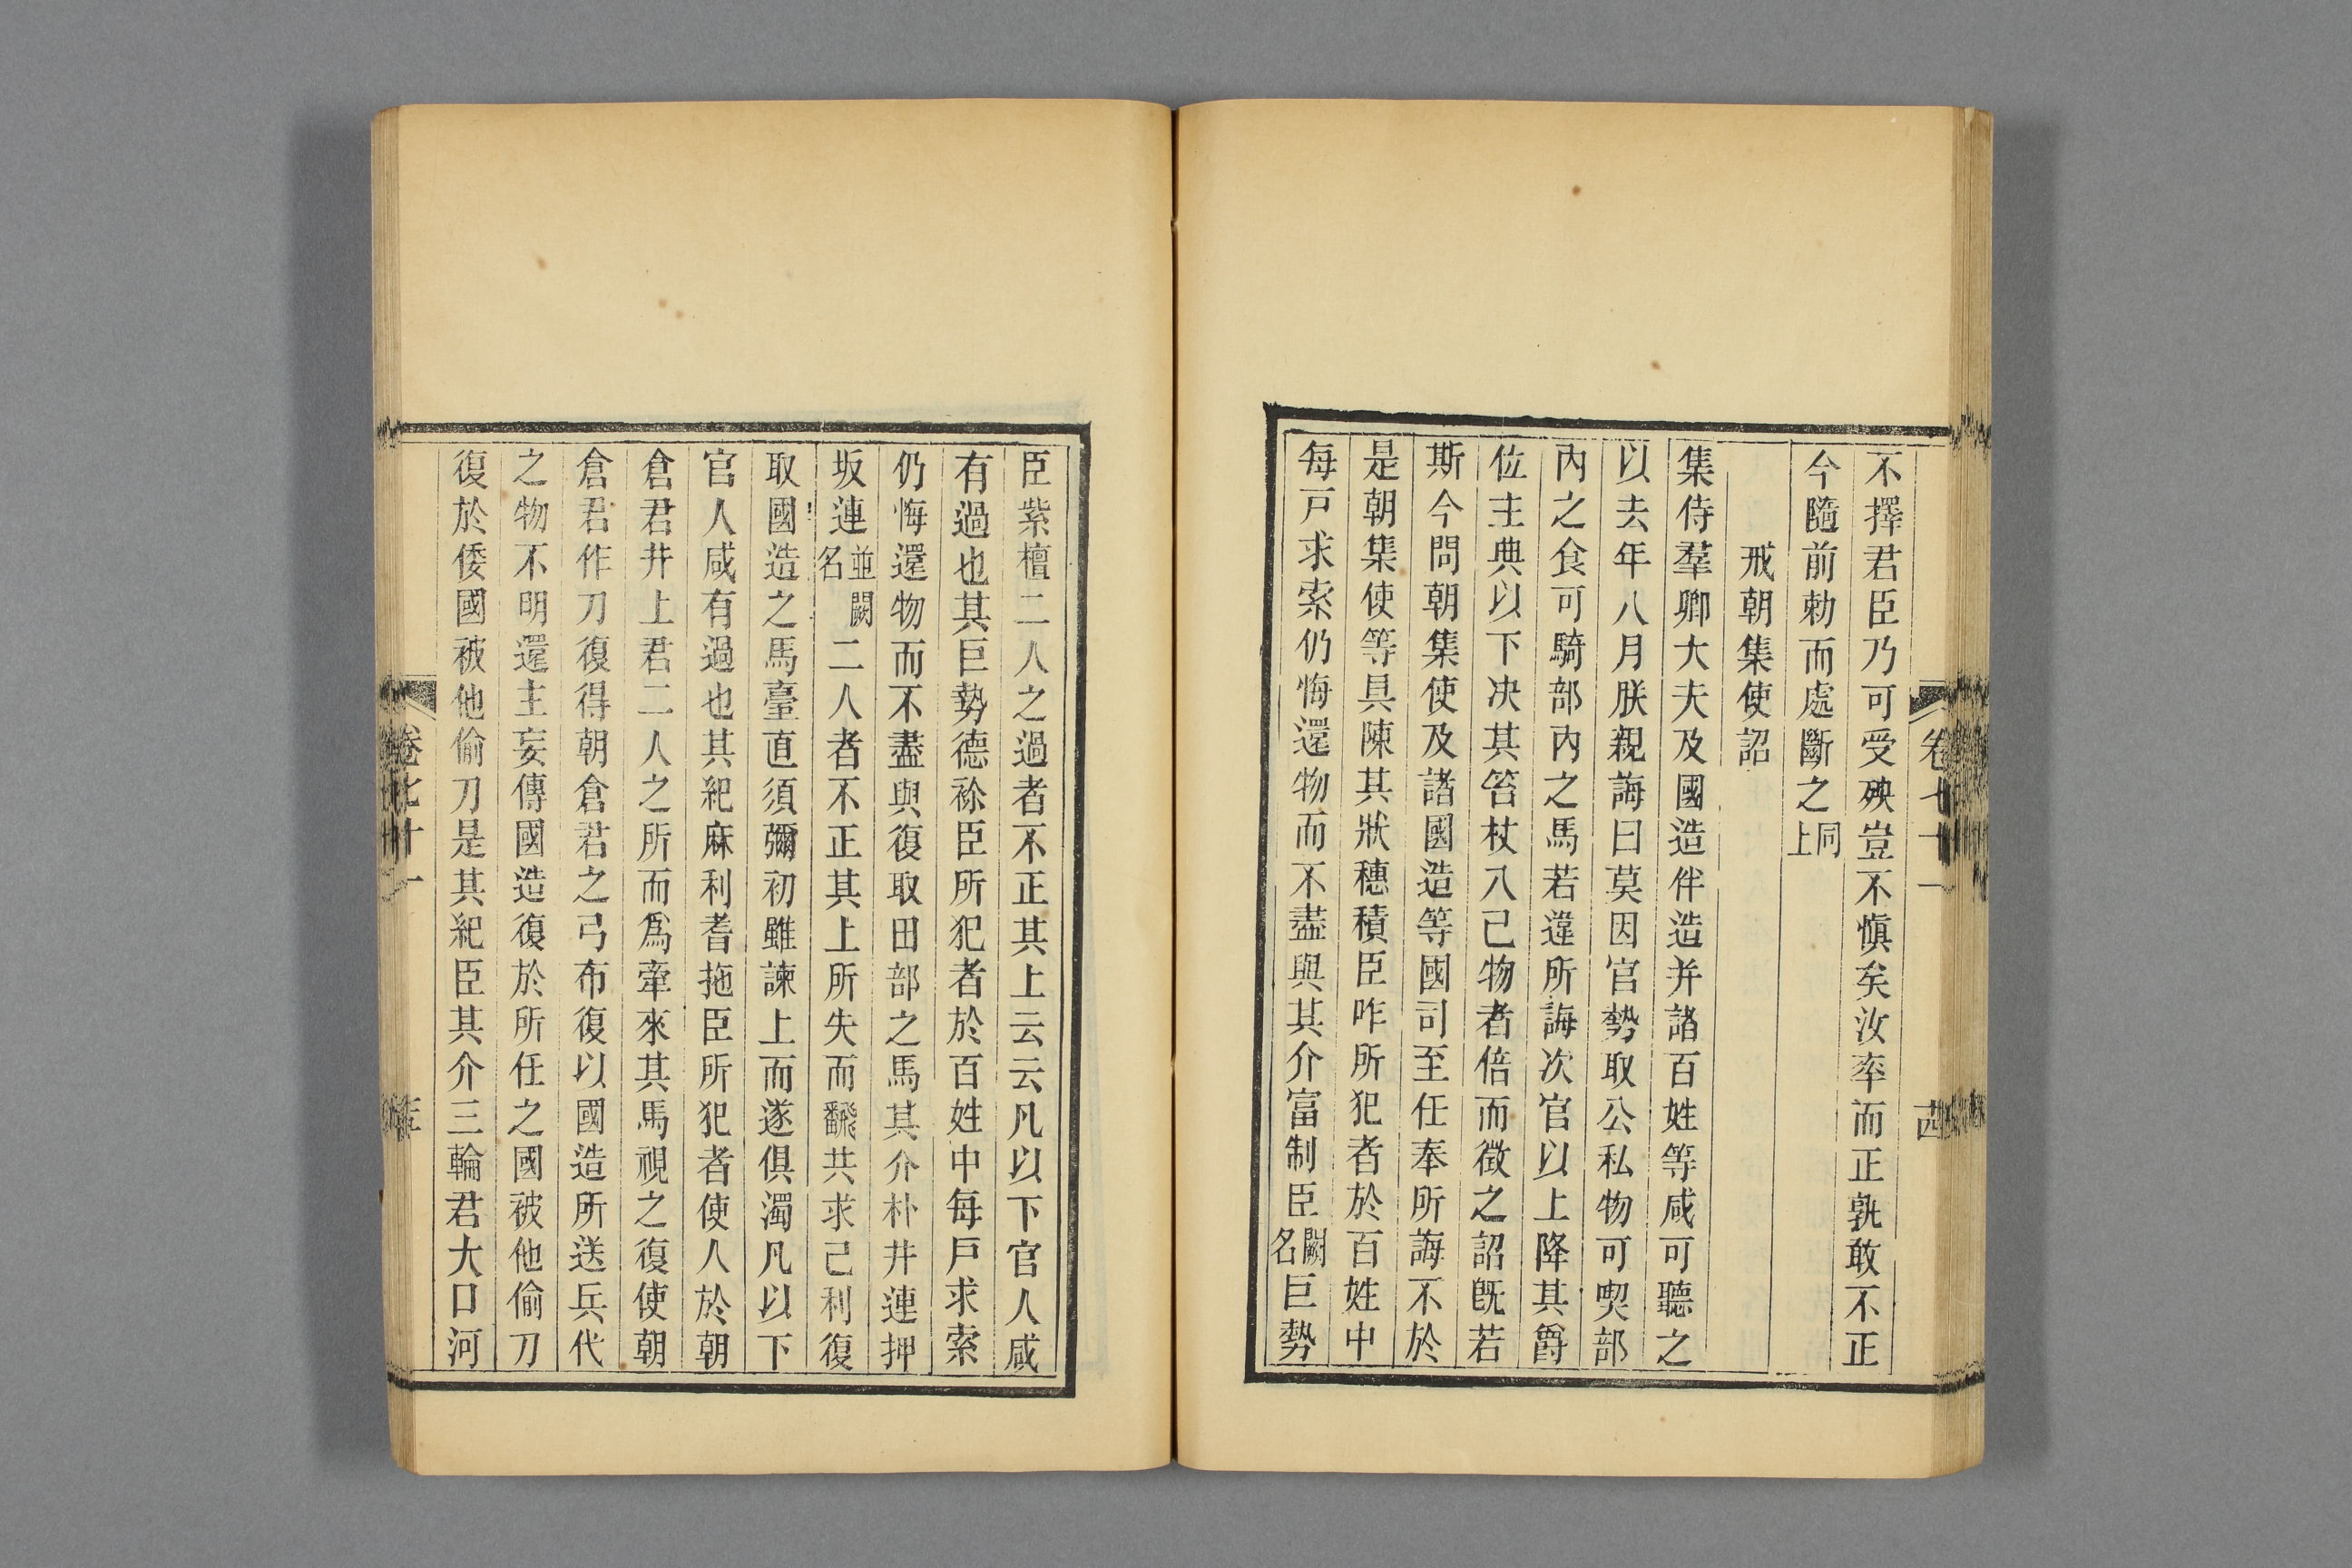 不擇君臣乃可受殃豈不愼矣汝率而正孰敢不正
今隨前勅而處斷之同上
戒朝集使詔
集侍羣卿大夫及國造伴造并諸百姓等咸可聽之
以去年八月朕親誨曰莫因官勢取公私物可喫部
內之食可騎部內之馬若違所誨次官以上降其爵
位主典以下決其笞杖入己物者倍而徵之詔既若
斯今問朝集使及諸國造等國司至任奉所誨不於
是朝集使等具陳其狀穗積臣咋所犯者於百姓中
每戸求索仍悔還物而不盡與其介富制臣闕名巨勢
臣紫檀二人之過者不正其上云云凡以下官人咸
有過也其巨勢德祢臣所犯者於百姓中每戸求索
仍悔還物而不盡與復取田部之馬其介朴井連押
坂連並闕名二人者不正其上所失而翻共求己利復
取國造之馬臺直須彌初雖諫上而遂俱濁凡以下
官人咸有過也其紀麻利耆拖臣所犯者使人於朝
倉君井上君二人之所而爲牽來其馬視之復使朝
倉君作刀復得朝倉君之弓布復以國造所送兵代
之物不明還主妄傳國造復於所任之國被他偷刀
復於倭國被他偷刀是其紀臣其介三輪君大口河
卷七十一
卷七十一